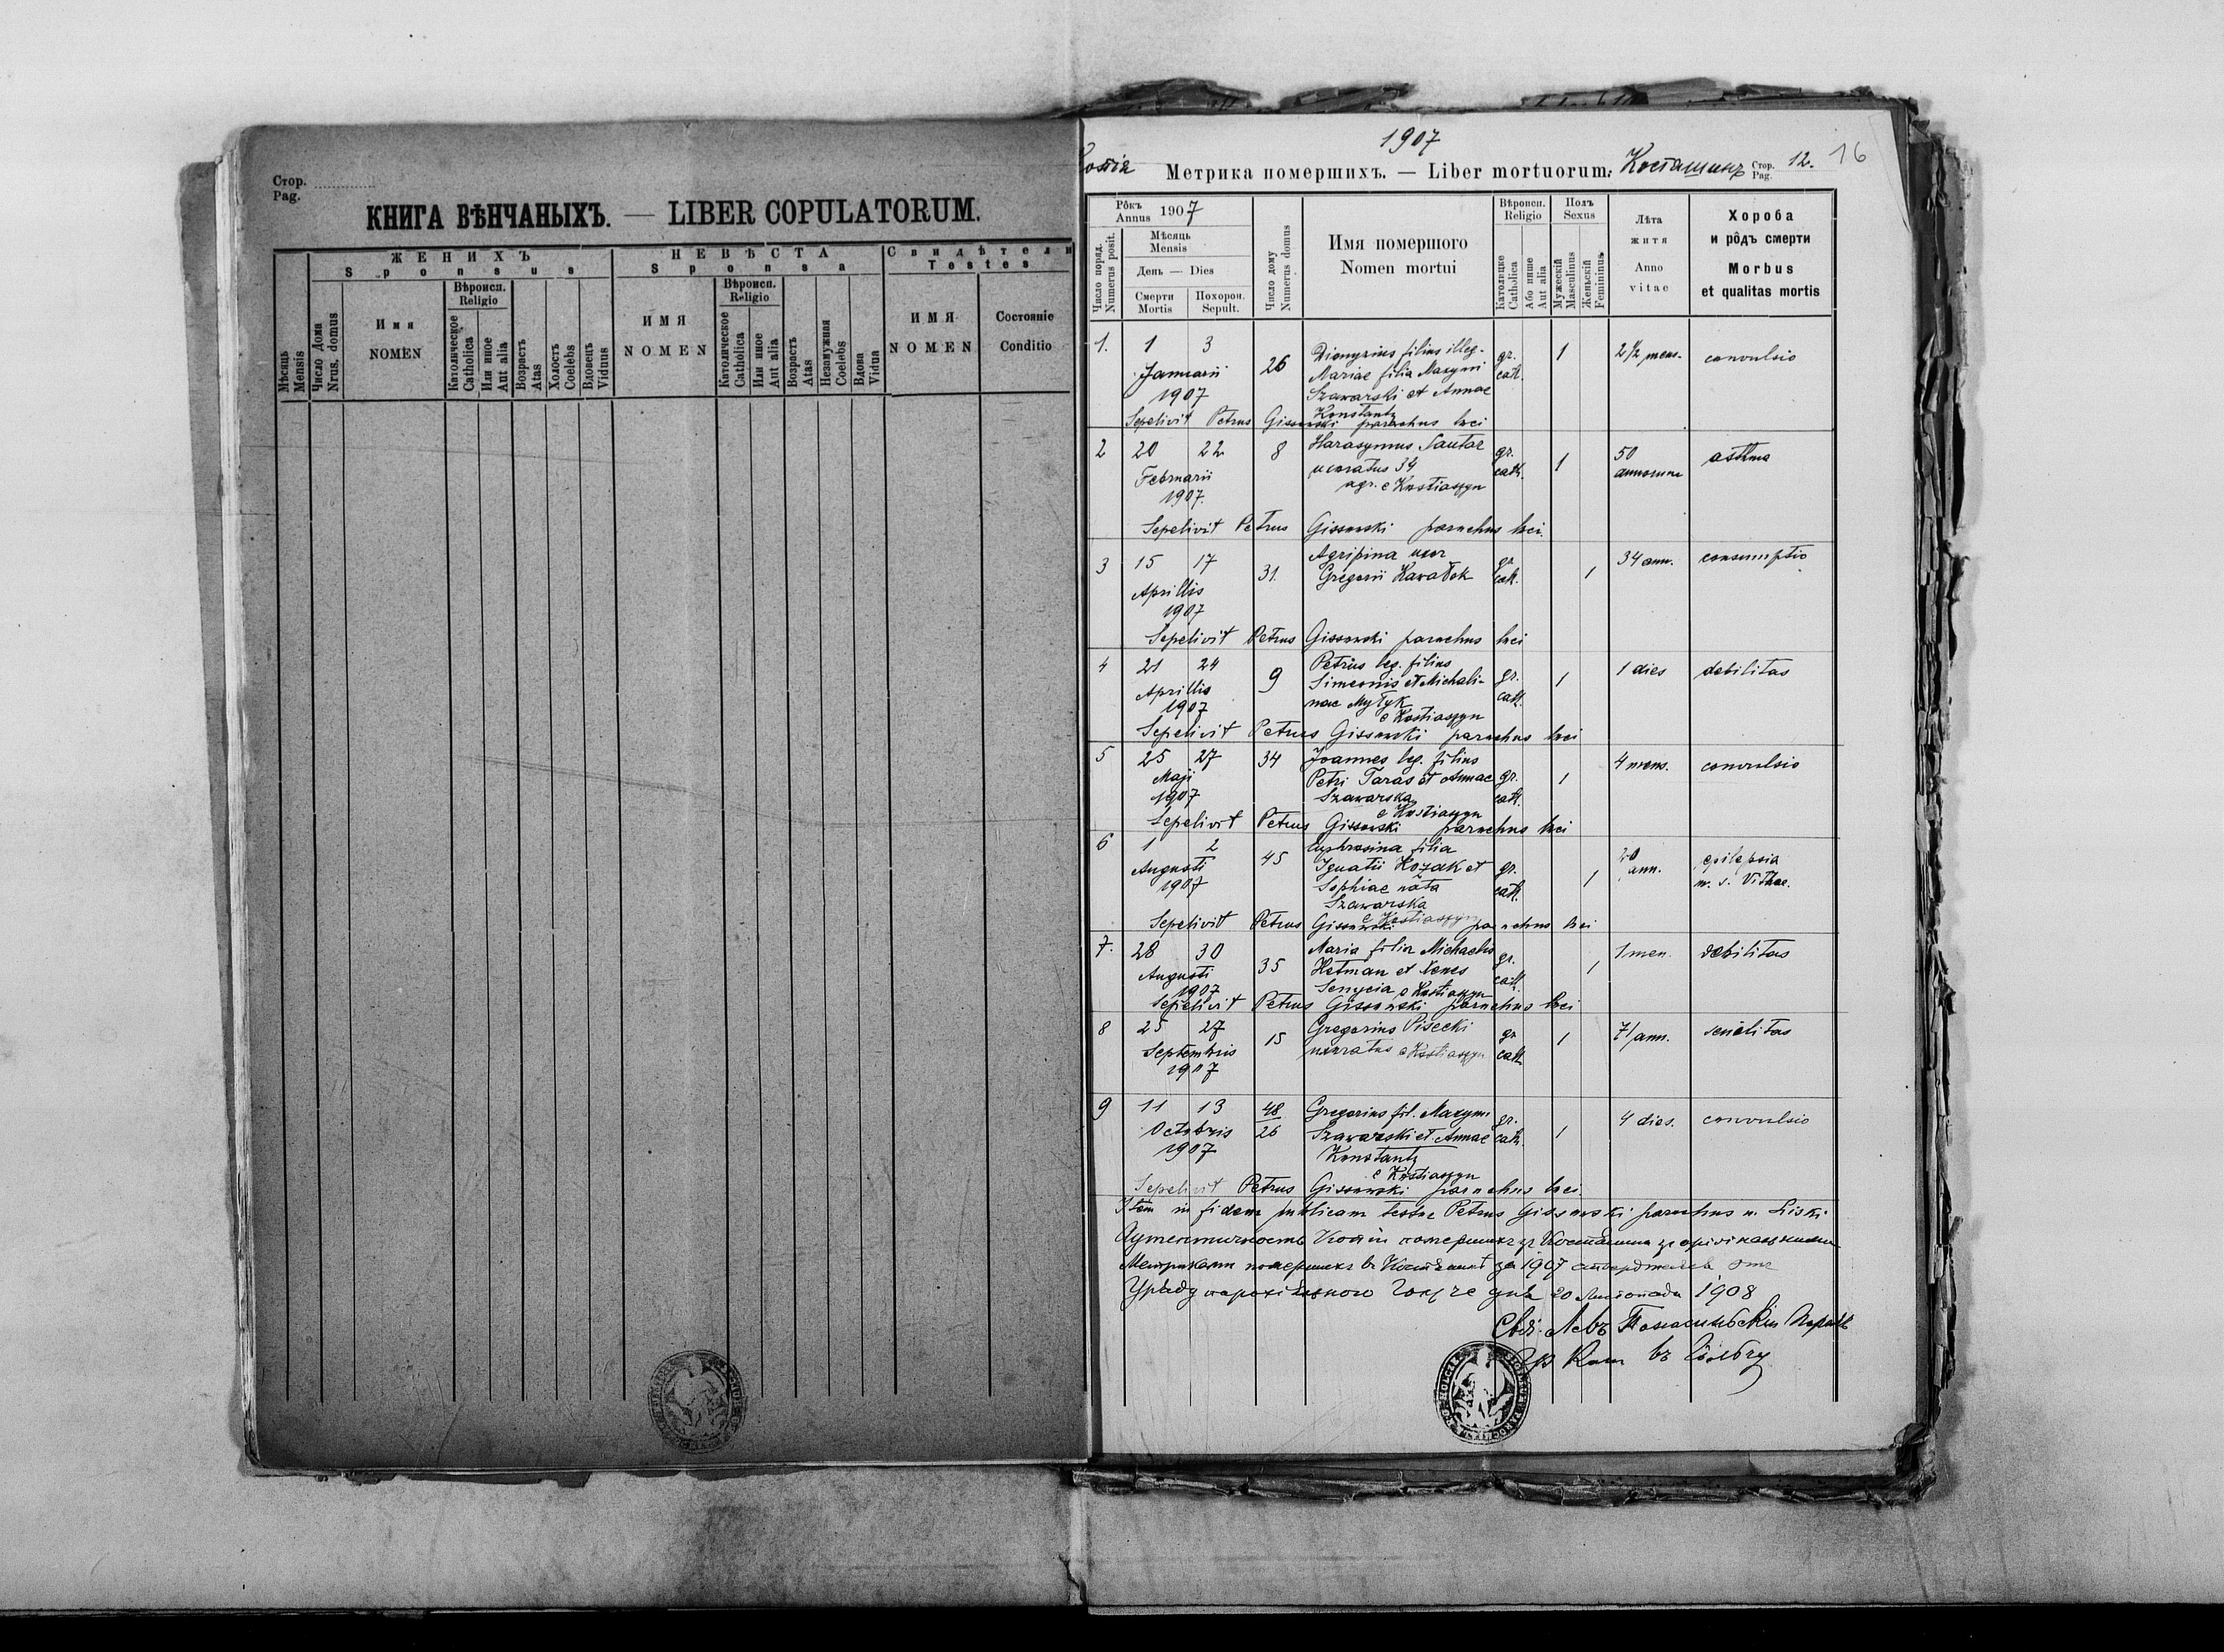 Стор.
Pag.
КНИГА ВѢНЧАНЫХЪ. — LIBER COPULATORUM.
ЖЕНИХЪ
Sponsus
НЕВѢСТА
Sponsa
Свидѣтели
Testes
Мѣсяць
Mensis
Число Дома
Nrus. domus
Имя
NOMEN
Вѣроисп.
Religio
Католическое
Catholica
Или иное
Aut alia
Возрастъ
Atas
Холостъ
Coelebs
Вдовецъ
Vidvus
ИМЯ
NOMEN
Вѣроисп.
Religio
Католическое
Catholica
Или иное
Aut alia
Возрастъ
Atas
Незамужная
Coelebs
Вдова
Vidua
ИМЯ
NOMEN
Состояніе
Conditio
1907
16
Копія Метрика помершихъ. — Liber mortuorum. Косташинъ Стор. Pag. 12.
Рôкъ
Annus 1907
Число поряд.
Numerus posit.
Мѣсяць
Mensis
День — Dies
Смерти
Mortis
Похорон.
Sepult.
Число дому
Numerus domus
Имя помершого
Nomen mortui
Вѣроисп.
Religio
Католицке
Catholica
Або инше
Aut alia
Полъ
Sexus
Мужескій
Masculinus
Женьскій
Femininus
Лѣта
житя
Anno
vitae
Хороба
и рôдъ смерти
Morbus
et qualitas mortis
1. 1 3 Dionysius filius illeg. gr. 1 2 1/2 mens. convulsio
Januarii 26 Mariae filia Maxymi cath.
1907 Szawarski et Annae
Konstantz
Sepelivit Petrus Gissowski parochus loci
2 20 22 8 Harasymus Sautar gr. 1 50 asthma
Februarii uxoratus 34 cath. annorum
1907. agr. e Kostiaszyn
Sepelivit Petrus Gissowski parochus loci.
3 15 17 31. Agripina uxor gr. 1 34 ann. consumptio
Aprilis Gregorii Kawałek cath.
1907
Sepelivit Petrus Gissowski parochus loci
4 21 24 9 Petrus leg. filius gr. 1 1 dies debilitas
Aprilis Simeonis et Michali- cath.
1907 nae Mytyk
e Kostiaszyn
Sepelivit Petrus Gissowski parochus loci
5 25 27 34 Joannes leg. filius gr. 1 4 mens. convulsio
Maji Petri Taras et Annae cath.
1907 Szawarska
e Kostiaszyn
Sepelivit Petrus Gissowski parochus loci
6 1 2 45 Euphrosina filia gr. 1 20 epilepsia
Augusti Ignatii Kozak et cath. ann.
1907 Sophiae nata
Szawarska
e Kostiaszyn
Sepelivit Petrus Gissowski parochus loci
7. 28 30 35 Maria filia Michaelis gr. 1 1 men. debilitas
Augusti Hetman et Xenes cath.
1907 Senycia e Kostiaszyn
Sepelivit Petrus Gissowski parochus loci
8 25 27 15 Gregorius Pisecki gr. 1 71 ann. senilitas
Septembris uxoratus e Kostiaszyn cath.
1907
9 11 13 48/26 Gregorius fil. Maxymi gr. 1 4 dies. convulsio
Octobris Szawarski et Annae cath.
1907 Konstantz
e Kostiaszyn
Sepelivit Petrus Gissowski parochus loci.
in fidem publicam testor Petrus Gissowski parochus Liski
Аутентичность Копіи помершихъ Косташина
Метриками помершихъ въ за 1907
Уряду парохіяльного дня 20 Листопада 1908
Левъ
въ